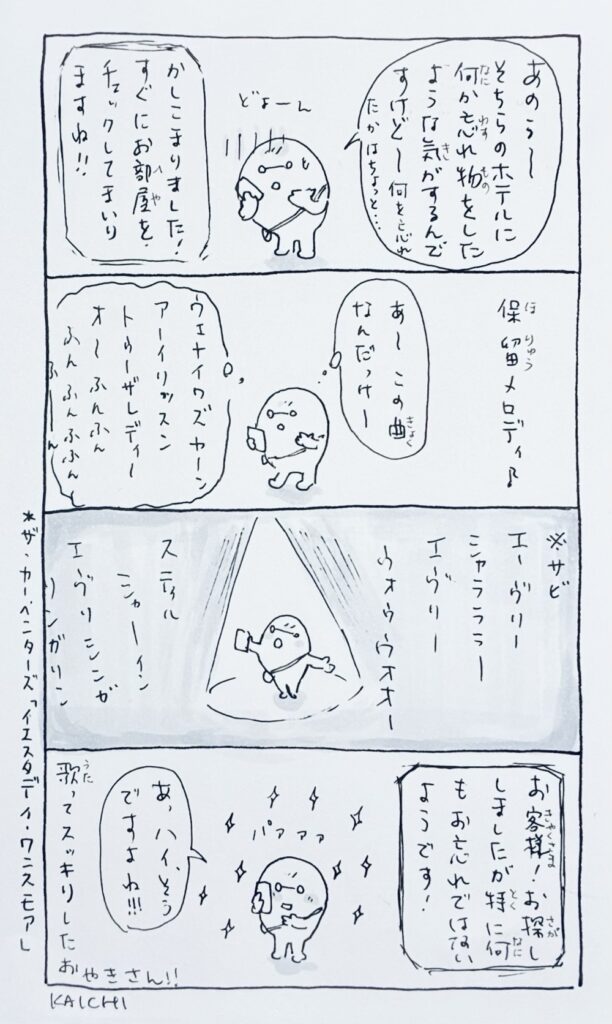 あのぅ〜
そちらのホテルに
何か忘れ物をした
ような気がするんで
すけど〜何を忘れ
たかはちょっと…
どよーん
かしこまりました!
すぐにお部屋を
チェックしてまいり
ますね!!
保留メロディ♪
あ〜この曲
なんだっけー
ウェナイワズヤーン
アーイリッスン
トゥーザレディー
オ〜ふんふん
ふんふんふふん
ふーん
※サビ
エーヴリー
シャラララー
エーヴリー
ウォウウオオー
スティル
シャーイン
エーヴリシンガ
リンガリン
お客様!お探し
しましたが特に何
もお忘れではない
ようです!
パァァァ
あ、ハイ、そう
ですよね!!!
歌ってスッキリした
おやきさん!!
*ザ・カーペンターズ「イエスタデイ・ワンスモア」
KAICHI